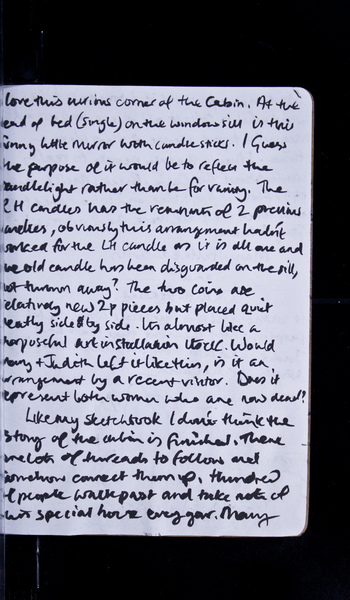 love this curious corner of the Cabin. At the
end of bed (single) on the window sill is this
funny little mirror with candle sticks. I Guess
the purpose of it would be to reflect the
candlelight rather than be for vanity. The
RH candles has the remnants of 2 previous
candles, obviously this arrangement hadn't
worked for the LH candle as it is all one and
the old candle has been disguarded on the sill,
not thrown away? The two coins are
relatively new 2p pieces but placed quit
neatly side by side. Its almost like a
purposful art installation itself. Would
+ Judith left it like this, is it an
arrangement by a recent visitor. Does it
represent both women who are now dead?
Like my sketchbook I don't think the
story of the cabin is finished. There
are lots of threads to follow and
somehow connect them up. Hundred
of people walk past and take note of
this special house every year. Many